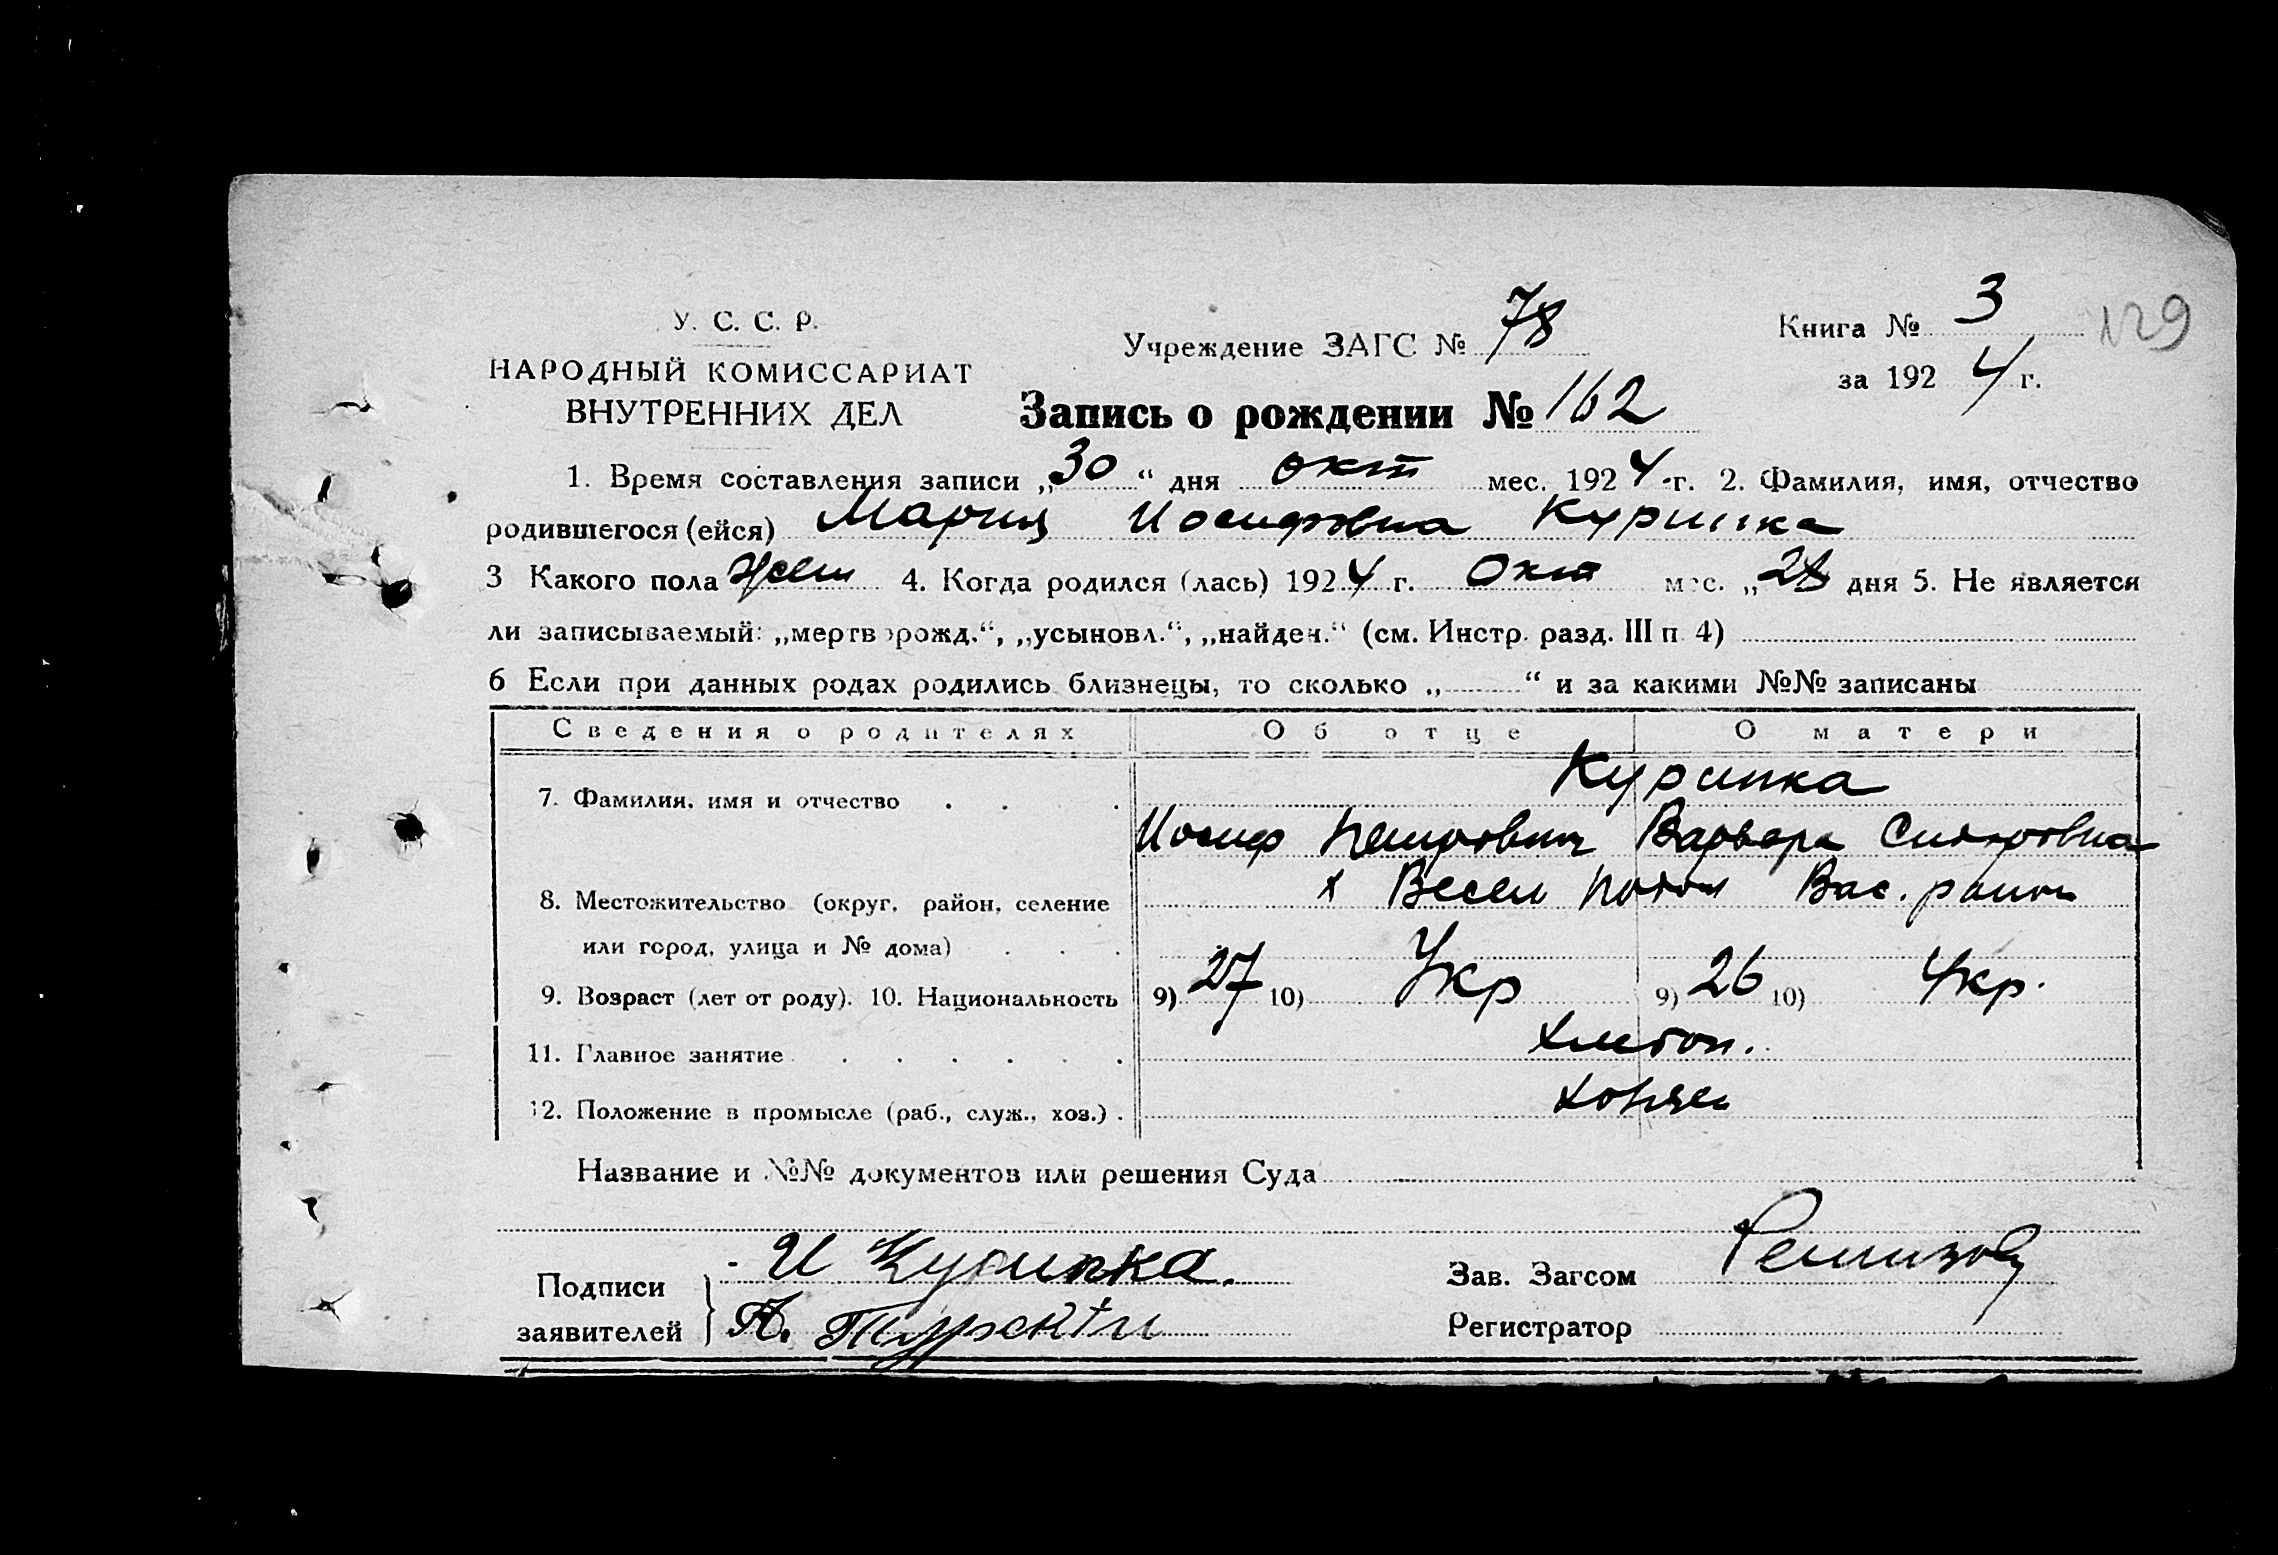 У. С. С. Р.
НАРОДНЫЙ КОМИССАРИАТ
ВНУТРЕННИХ ДЕЛ
Учреждение ЗАГС № 78
Книга № 3
129
за 1924 г.
Запись о рождении № 162
1. Время составления записи „30“ дня окт мес. 1924 г. 2. Фамилия, имя, отчество
родившегося (ейся) Мария Иосифовна Курипка
3 Какого пола жен 4. Когда родился (лась) 1924 г. Окт мес. „28 дня 5. Не является
ли записываемый: „мертворожд.“, „усыновл.“, „найден.“ (см. Инстр. разд. III п 4)
6 Если при данных родах родились близнецы, то сколько „ “ и за какими №№ записаны
Сведения о родителях Об отце О матери
Курипка
7. Фамилия, имя и отчество
Иосиф Петрович Варвара
8. Местожительство (округ, район, селение х Весел Вас. район
или город, улица и № дома)
9. Возраст (лет от роду). 10. Национальность 9) 27 10) Укр 9) 26 10) Укр.
11. Главное занятие Хлебоп.
12. Положение в промысле (раб., служ., хоз.) хозяев
Название и №№ документов или решения Суда
Подписи
заявителей
И Курипка.
Зав. Загсом Ремизов
Регистратор